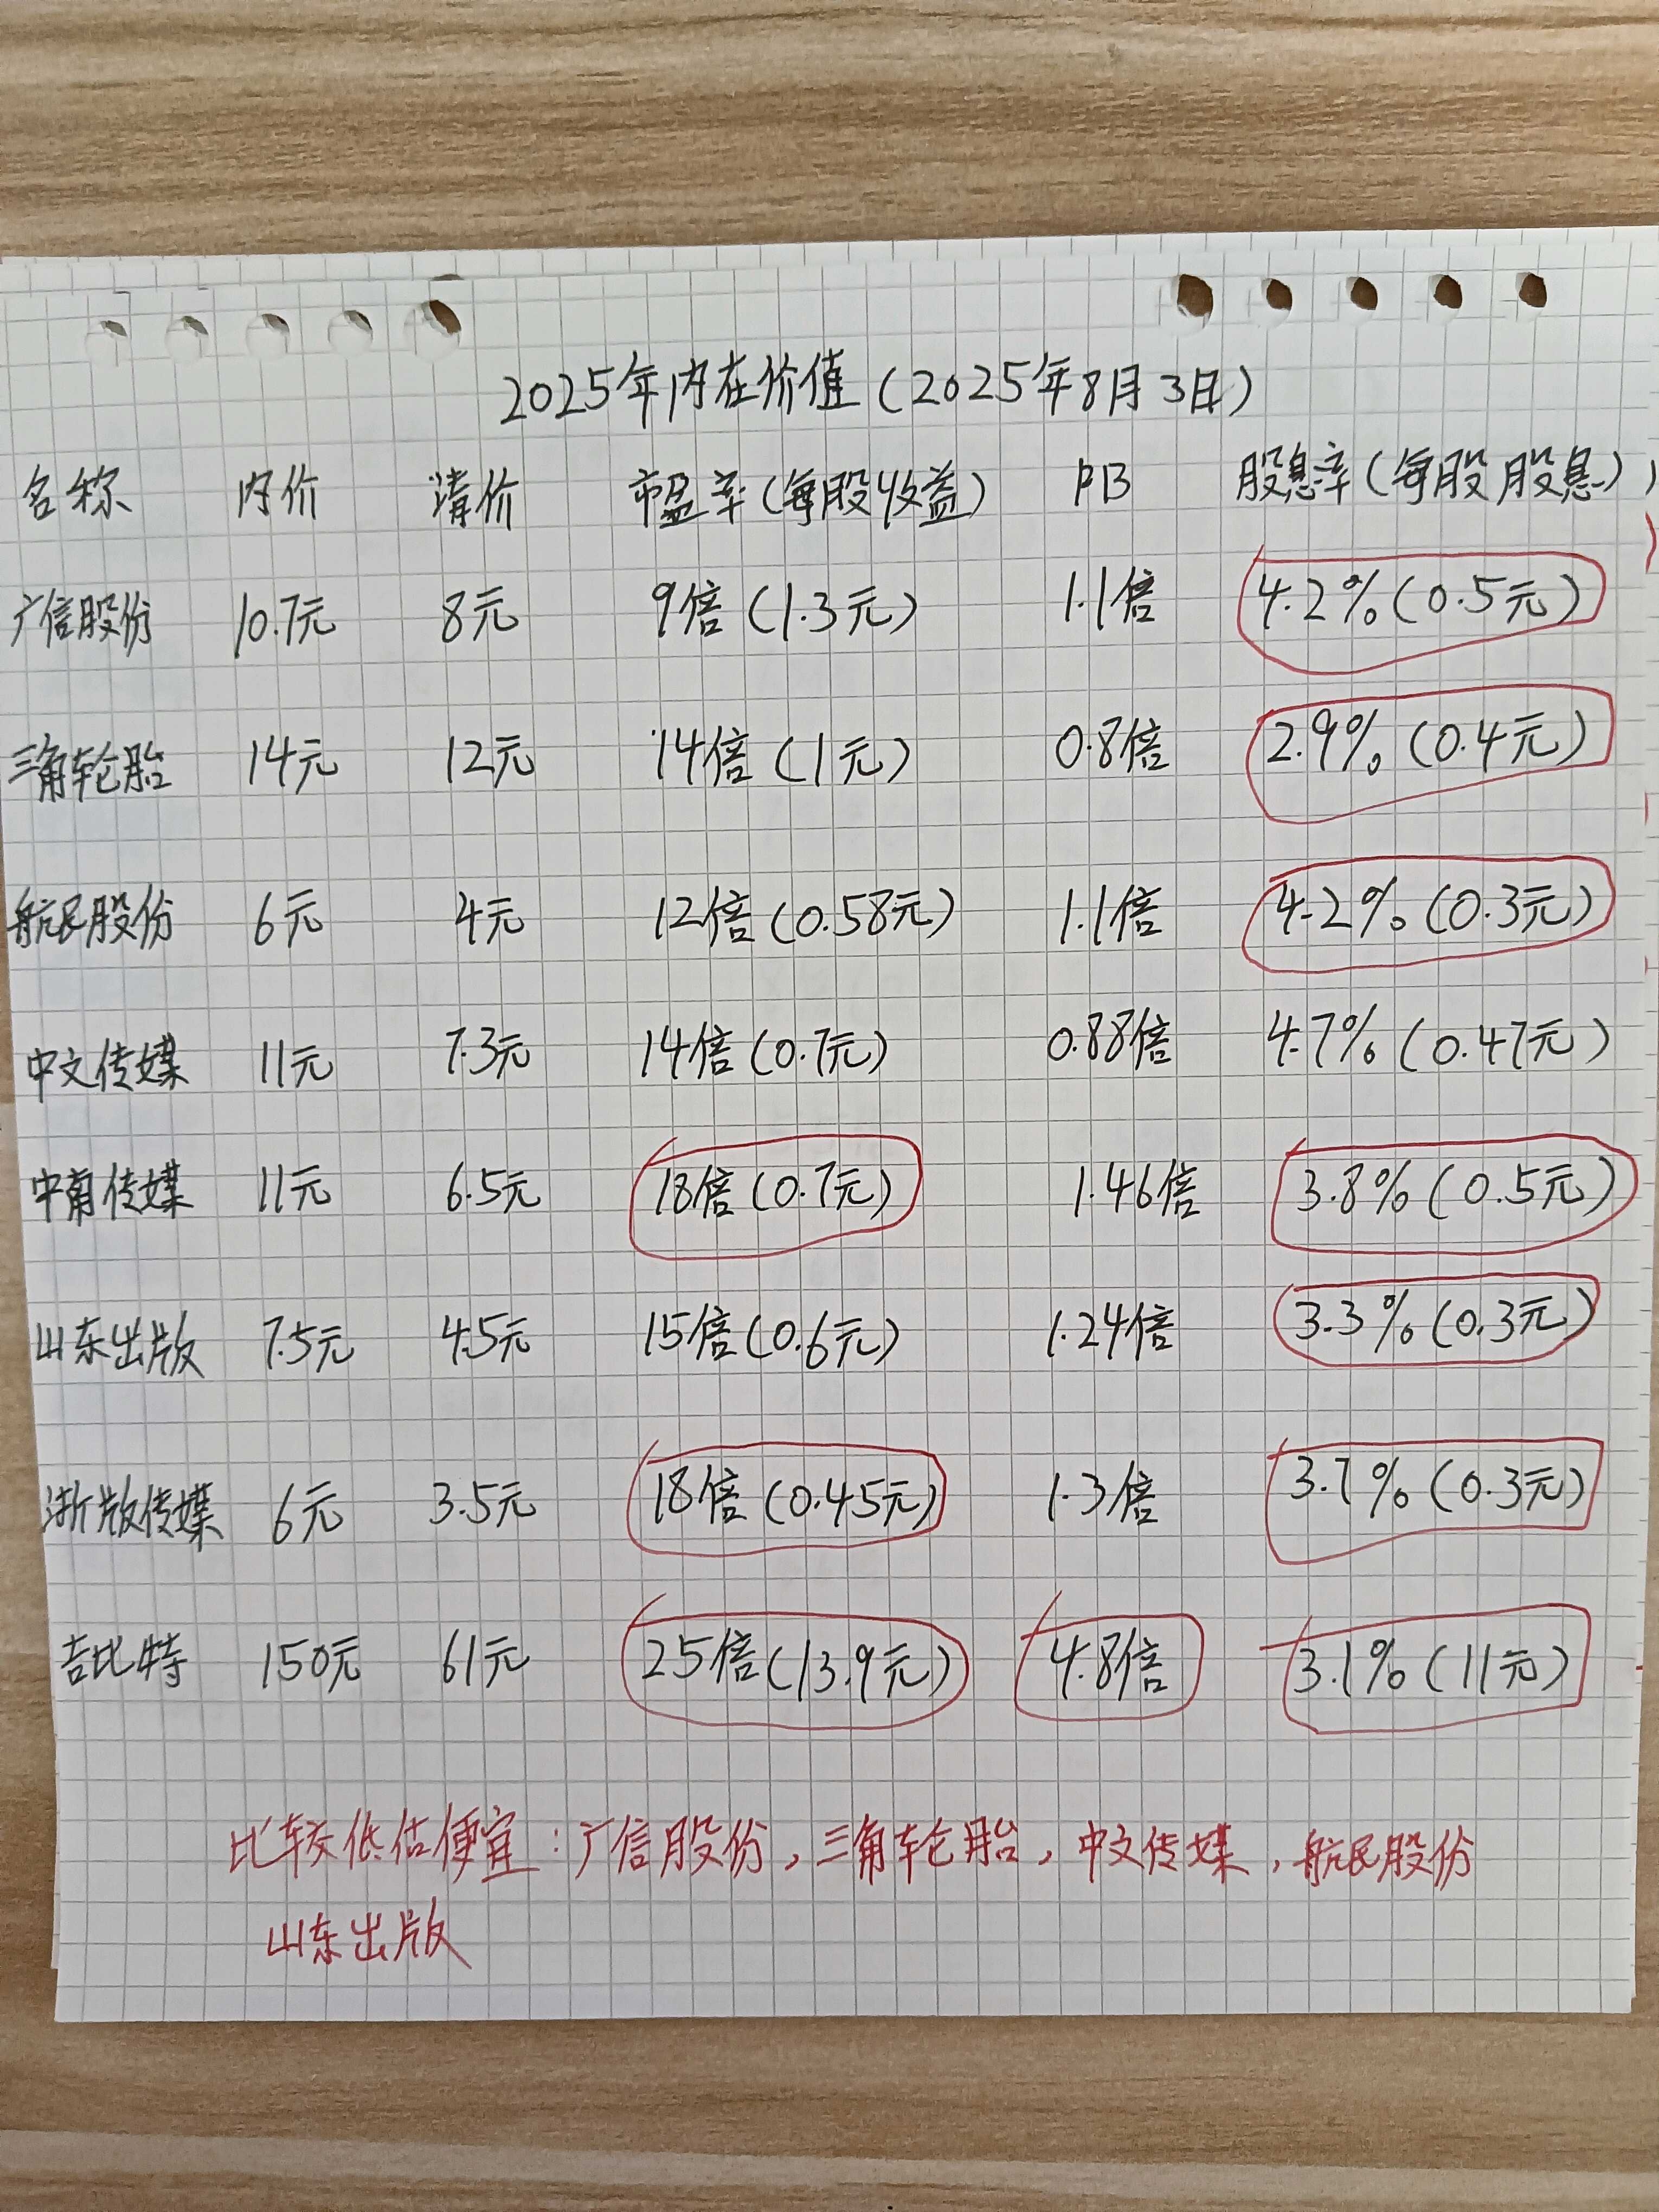 2025年内在价值(2025年8月3日)
名称 内价 清价 市盈率(每股收益) PB 股息率(每股股息)
广信股份 10.7元 8元 9倍(1.3元) 1.1倍 4.2%(0.5元)
三角轮胎 14元 12元 14倍(1元) 0.8倍 2.9%(0.4元)
航民股份 6元 4元 12倍(0.58元) 1.1倍 4.2%(0.3元)
中文传媒 11元 7.3元 14倍(0.7元) 0.88倍 4.7%(0.47元)
中南传媒 11元 6.5元 18倍(0.7元) 1.46倍 3.8%(0.5元)
山东出版 7.5元 4.5元 15倍(0.6元) 1.24倍 3.3%(0.3元)
浙版传媒 6元 3.5元 18倍(0.45元) 1.3倍 3.7%(0.3元)
吉比特 150元 61元 25倍(13.9元) 4.8倍 3.1%(11元)
比较低估便宜:广信股份,三角轮胎,中文传媒,航民股份
山东出版